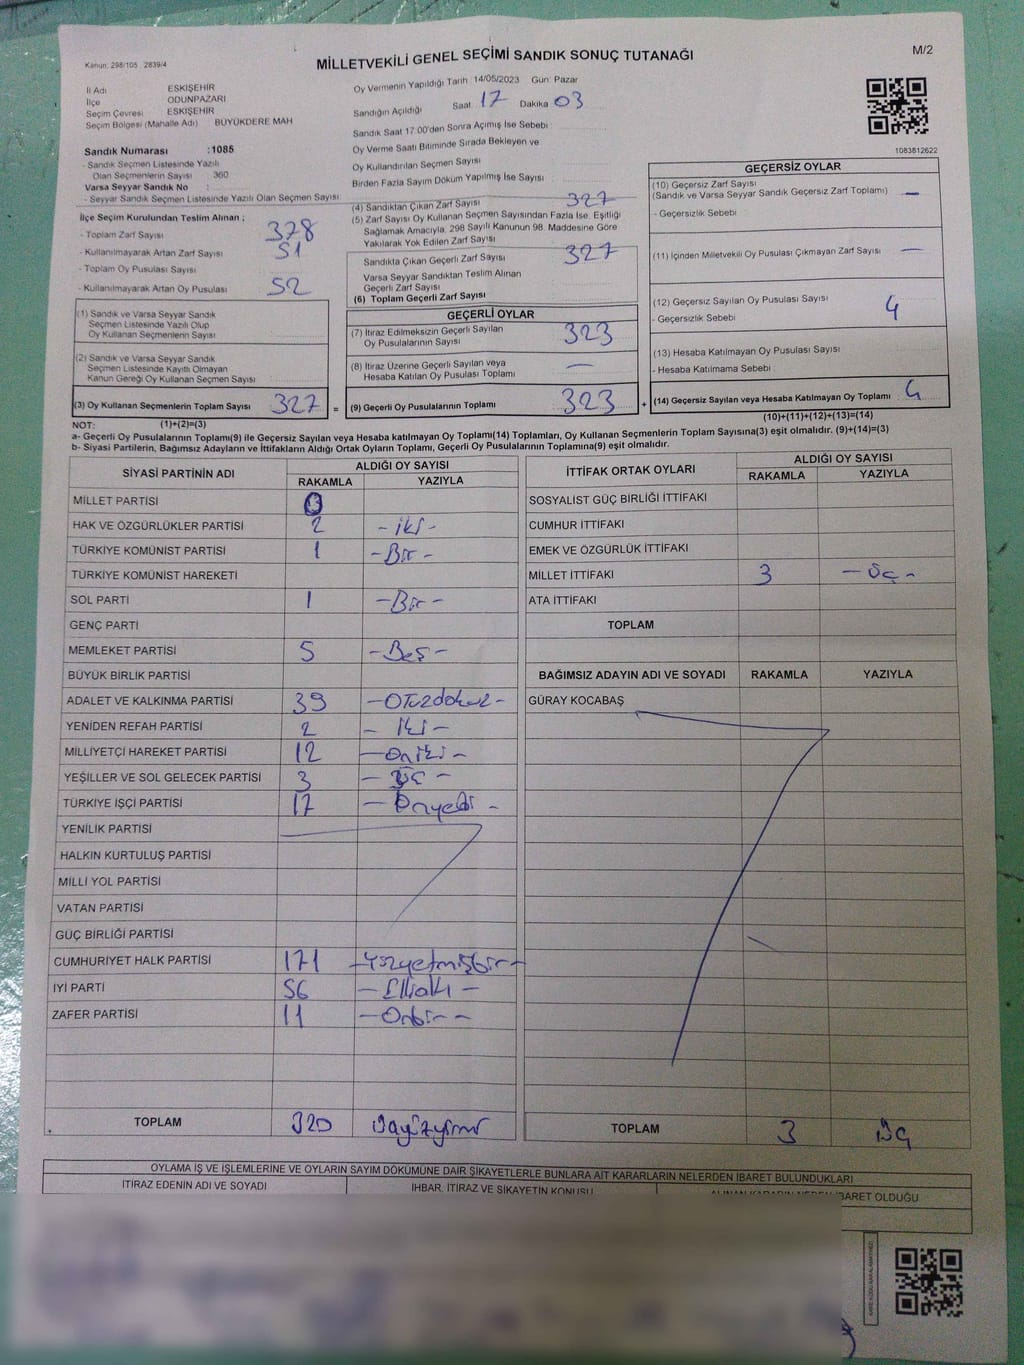 Kanun: 298/105 2839/4
MİLLETVEKİLİ GENEL SEÇİMİ SANDIK SONUÇ TUTANAĞI
M/2
İl Adı ESKİŞEHİR
İlçe ODUNPAZARI
Seçim Çevresi ESKİŞEHİR
Seçim Bölgesi (Mahalle Adı) BÜYÜKDERE MAH
Sandık Numarası :1085
- Sandık Seçmen Listesinde Yazılı
Olan Seçmenlerin Sayısı 360
Varsa Seyyar Sandık No :
- Seyyar Sandık Seçmen Listesinde Yazılı Olan Seçmen Sayısı
Oy Vermenin Yapıldığı Tarih 14/05/2023 Gün: Pazar
Sandığın Açıldığı Saat 17 Dakika 03
Sandık Saat 17:00'den Sonra Açılmış İse Sebebi :
Oy Verme Saati Bitiminde Sırada Bekleyen ve
Oy Kullandırılan Seçmen Sayısı
Birden Fazla Sayım Döküm Yapılmış İse Sayısı
1083812622
İlçe Seçim Kurulundan Teslim Alınan ;
- Toplam Zarf Sayısı 378
- Kullanılmayarak Artan Zarf Sayısı 51
- Toplam Oy Pusulası Sayısı
- Kullanılmayarak Artan Oy Pusulası 52
(1) Sandık ve Varsa Seyyar Sandık
Seçmen Listesinde Yazılı Olup
Oy Kullanan Seçmenlerin Sayısı
(2) Sandık ve Varsa Seyyar Sandık
Seçmen Listesinde Kayıtlı Olmayan
Kanun Gereği Oy Kullanan Seçmen Sayısı
(3) Oy Kullanan Seçmenlerin Toplam Sayısı 327 =
(4) Sandıktan Çıkan Zarf Sayısı 327
(5) Zarf Sayısı Oy Kullanan Seçmen Sayısından Fazla İse, Eşitliği
Sağlamak Amacıyla, 298 Sayılı Kanunun 98. Maddesine Göre
Yakılarak Yok Edilen Zarf Sayısı
Sandıkta Çıkan Geçerli Zarf Sayısı 327
Varsa Seyyar Sandıktan Teslim Alınan
Geçerli Zarf Sayısı
(6) Toplam Geçerli Zarf Sayısı
GEÇERLİ OYLAR
(7) İtiraz Edilmeksizin Geçerli Sayılan
Oy Pusulalarının Sayısı 323
(8) İtiraz Üzerine Geçerli Sayılan veya
Hesaba Katılan Oy Pusulası Toplamı —
(9) Geçerli Oy Pusulalarının Toplamı 323 +
GEÇERSİZ OYLAR
(10) Geçersiz Zarf Sayısı
(Sandık ve Varsa Seyyar Sandık Geçersiz Zarf Toplamı) —
- Geçersizlik Sebebi
(11) İçinden Milletvekili Oy Pusulası Çıkmayan Zarf Sayısı —
(12) Geçersiz Sayılan Oy Pusulası Sayısı 4
- Geçersizlik Sebebi
(13) Hesaba Katılmayan Oy Pusulası Sayısı
- Hesaba Katılmama Sebebi
(14) Geçersiz Sayılan veya Hesaba Katılmayan Oy Toplamı 4
NOT: (1)+(2)=(3) (10)+(11)+(12)+(13)=(14)
a- Geçerli Oy Pusulalarının Toplamı(9) ile Geçersiz Sayılan veya Hesaba katılmayan Oy Toplamı(14) Toplamları, Oy Kullanan Seçmenlerin Toplam Sayısına(3) eşit olmalıdır. (9)+(14)=(3)
b- Siyasi Partilerin, Bağımsız Adayların ve İttifakların Aldığı Ortak Oyların Toplamı, Geçerli Oy Pusulalarının Toplamına(9) eşit olmalıdır.
SİYASİ PARTİNİN ADI ALDIĞI OY SAYISI
RAKAMLA YAZIYLA
MİLLET PARTİSİ
HAK VE ÖZGÜRLÜKLER PARTİSİ 2 - iki -
TÜRKİYE KOMÜNİST PARTİSİ 1 - Bir -
TÜRKİYE KOMÜNİST HAREKETİ
SOL PARTİ 1 - Bir -
GENÇ PARTİ
MEMLEKET PARTİSİ 5 - Beş -
BÜYÜK BİRLİK PARTİSİ
ADALET VE KALKINMA PARTİSİ 39 - Otuzdokuz -
YENİDEN REFAH PARTİSİ 2 - iki -
MİLLİYETÇİ HAREKET PARTİSİ 12 - Oniki -
YEŞİLLER VE SOL GELECEK PARTİSİ 3 - Üç -
TÜRKİYE İŞÇİ PARTİSİ 17 - Onyedi -
YENİLİK PARTİSİ
HALKIN KURTULUŞ PARTİSİ
MİLLİ YOL PARTİSİ
VATAN PARTİSİ
GÜÇ BİRLİĞİ PARTİSİ
CUMHURİYET HALK PARTİSİ 171 - Yüzyetmişbir -
İYİ PARTİ 56 - Elli**altı** -
ZAFER PARTİSİ 11 - Onbir -
TOPLAM 320 Üçyüzyirmi
İTTİFAK ORTAK OYLARI ALDIĞI OY SAYISI
RAKAMLA YAZIYLA
SOSYALİST GÜÇ BİRLİĞİ İTTİFAKI
CUMHUR İTTİFAKI
EMEK VE ÖZGÜRLÜK İTTİFAKI
MİLLET İTTİFAKI 3 - Üç -
ATA İTTİFAKI
TOPLAM
BAĞIMSIZ ADAYIN ADI VE SOYADI RAKAMLA YAZIYLA
GÜRAY KOCABAŞ
TOPLAM 3 Üç
OYLAMA İŞ VE İŞLEMLERİNE VE OYLARIN SAYIM DÖKÜMÜNE DAİR ŞİKAYETLERLE BUNLARA AİT KARARLARIN NELERDEN İBARET BULUNDUKLARI
İTİRAZ EDENİN ADI VE SOYADI İHBAR, İTİRAZ VE ŞİKAYETİN KONUSU ALINAN KARARIN NEDEN İBARET OLDUĞU